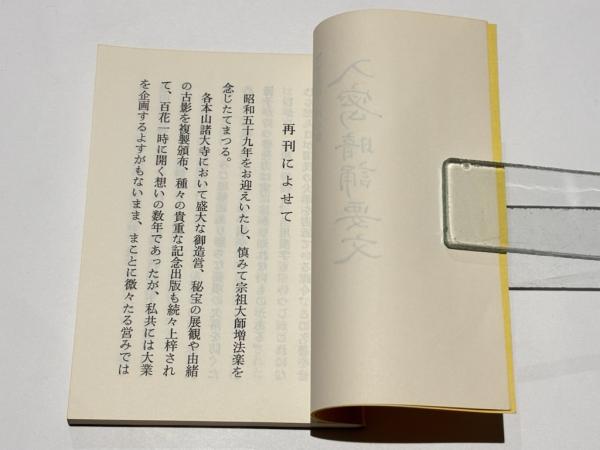 入密暗誦要文
再刊によせて
昭和五十九年をお迎えいたし、慎みて宗祖大師増法楽を
念じたてまつる。
各本山諸大寺において盛大な御造営、秘宝の展観や由緒
の古影を複製頒布、種々の貴重な記念出版も続々上梓され
て、百花一時に開く想いの数年であったが、私共には大業
を企画するよすがもないまま、まことに微々たる営みでは